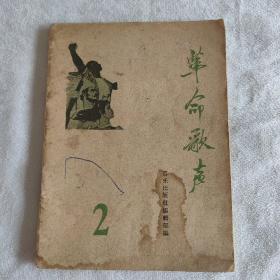 革命歌声
音乐出版社编辑部编
2